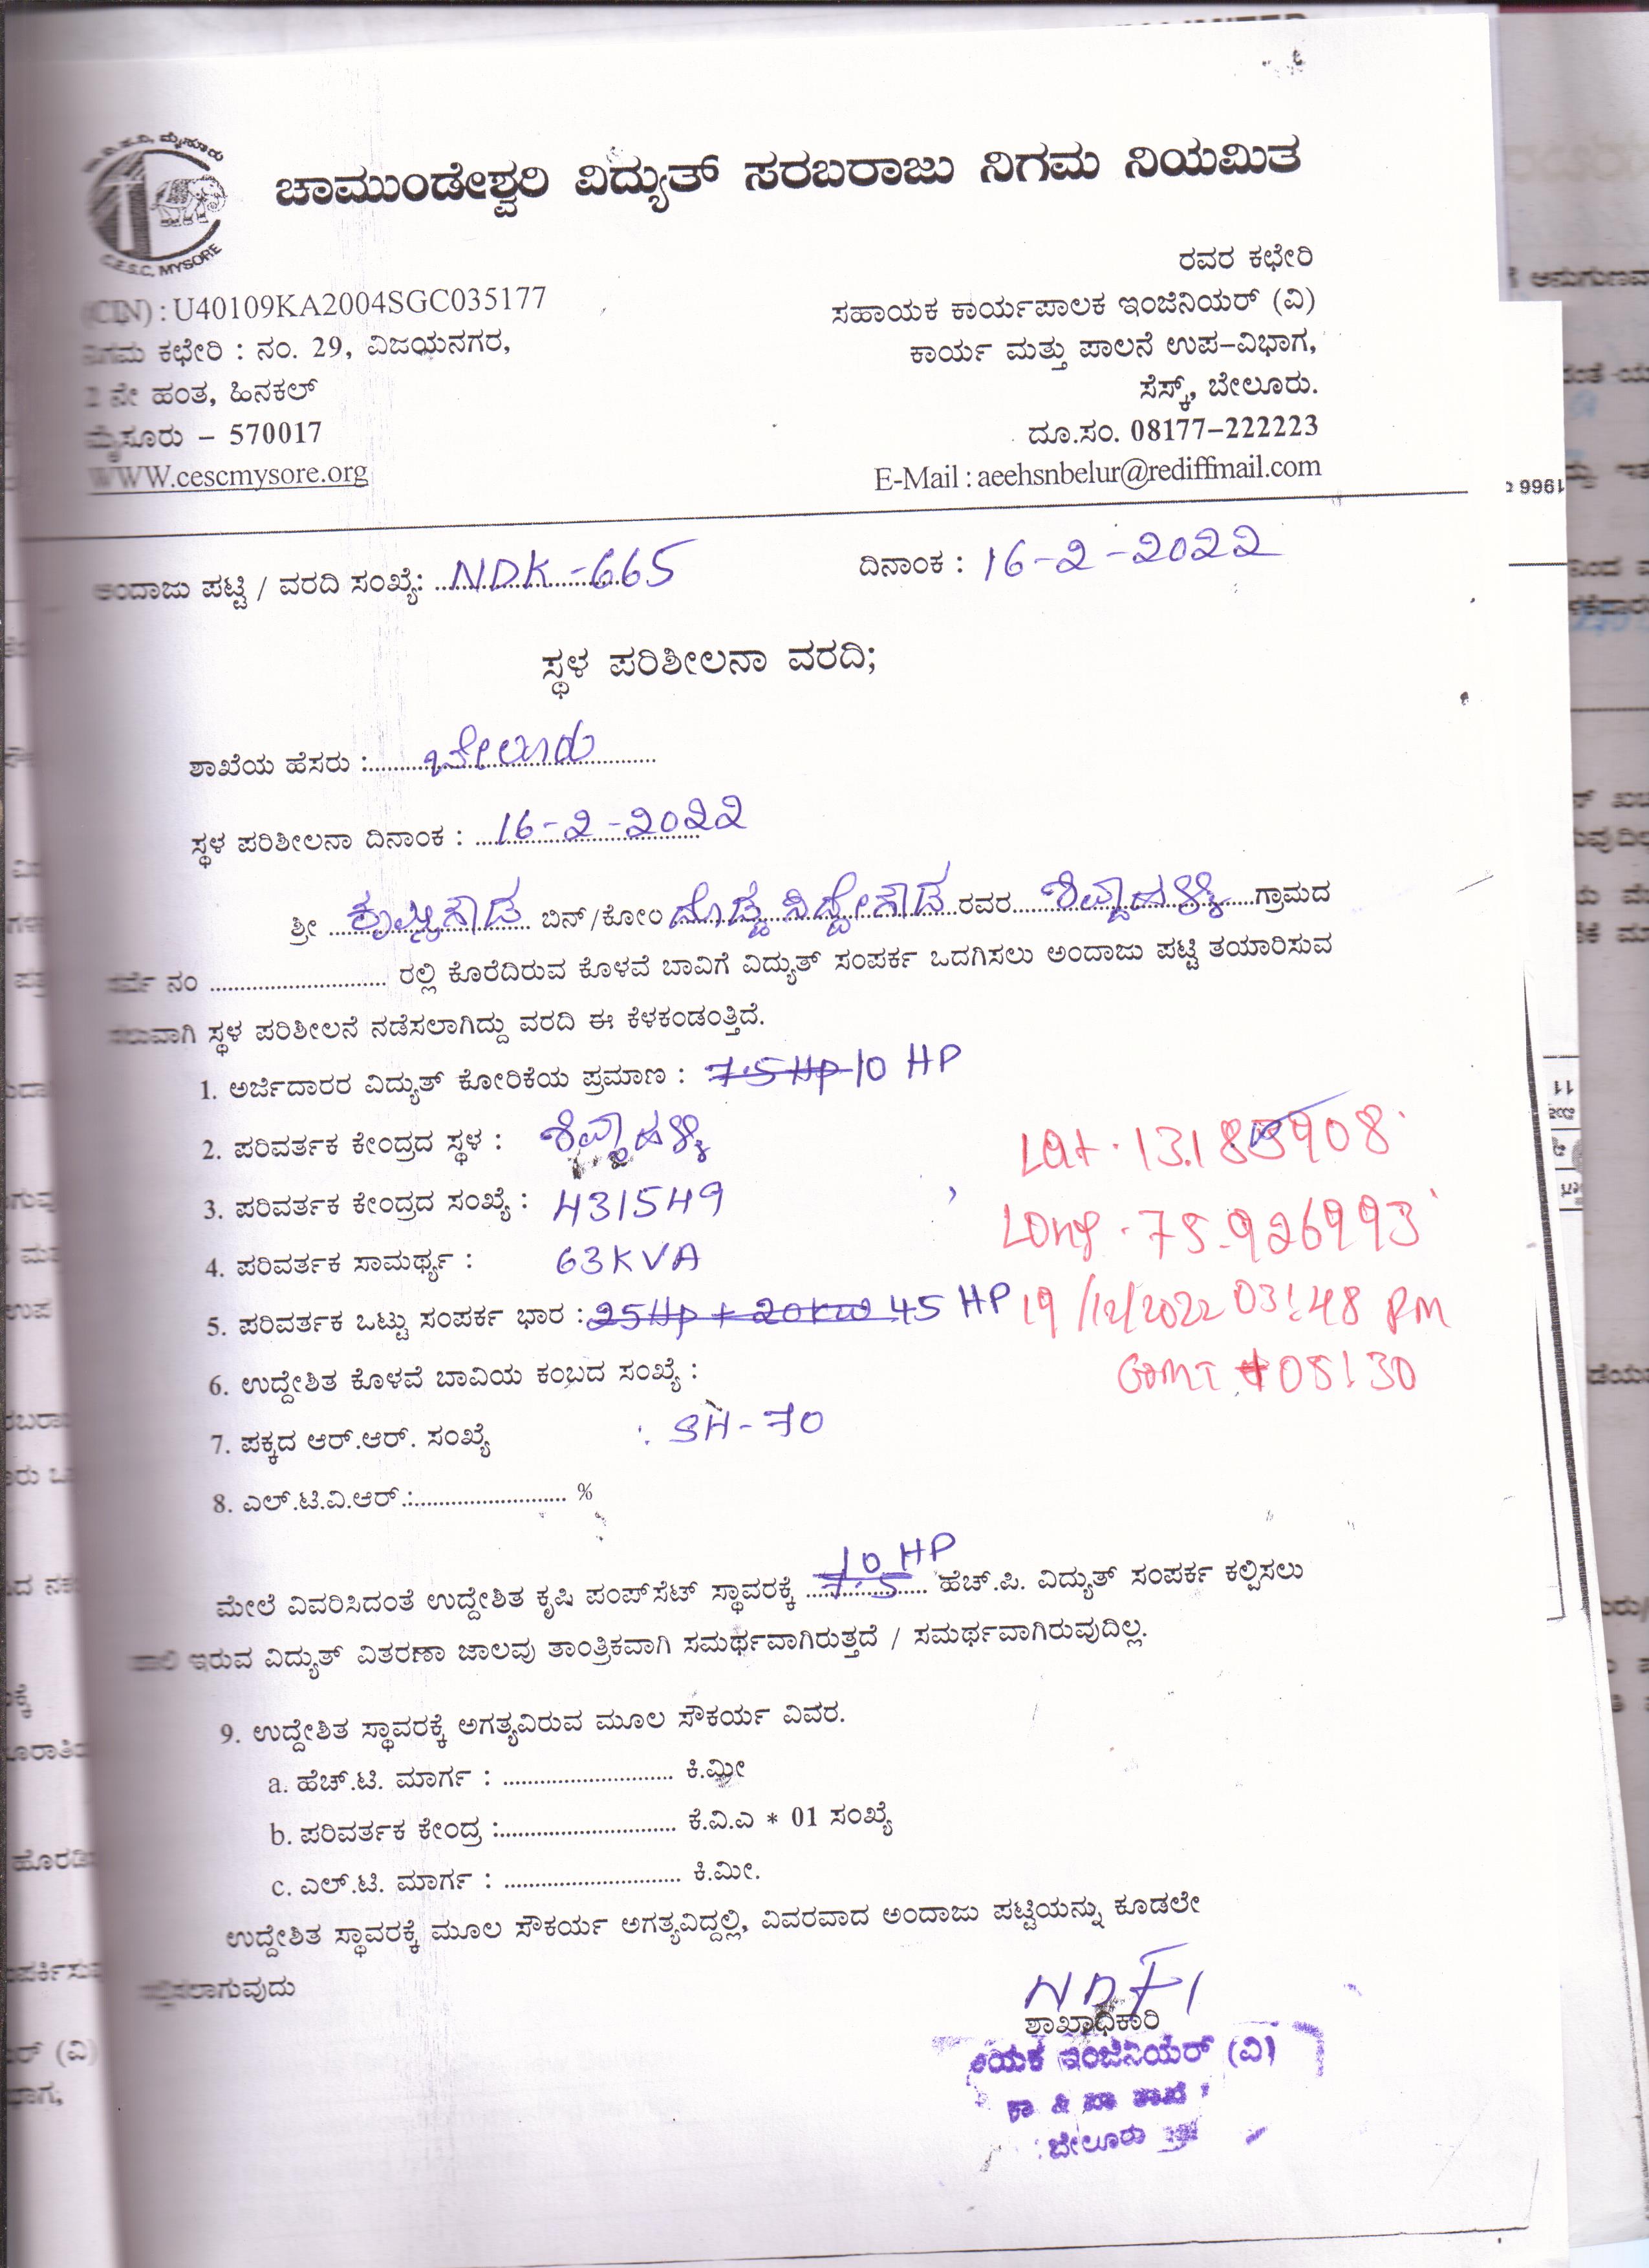 ಚಾಮುಂಡೇಶ್ವರಿ ವಿದ್ಯುತ್ ಸರಬರಾಜು ನಿಗಮ ನಿಯಮಿತ
C.E.S.C, MYSORE
(CIN) : U40109KA2004SGC035177
ನಿಗಮ ಕಛೇರಿ : ನಂ. 29, ವಿಜಯನಗರ,
2 ನೇ ಹಂತ, ಹಿನಕಲ್
ಮೈಸೂರು – 570017
WWW.cescmysore.org
ರವರ ಕಛೇರಿ
ಸಹಾಯಕ ಕಾರ್ಯಪಾಲಕ ಇಂಜಿನಿಯರ್ (ವಿ)
ಕಾರ್ಯ ಮತ್ತು ಪಾಲನೆ ಉಪ–ವಿಭಾಗ,
ಸೆಸ್ಕ್, ಬೇಲೂರು.
ದೂ.ಸಂ. 08177–222223
E-Mail : aeehsnbelur@rediffmail.com
ಅಂದಾಜು ಪಟ್ಟಿ / ವರದಿ ಸಂಖ್ಯೆ: NDK -665 ದಿನಾಂಕ : 16-2-2022
ಸ್ಥಳ ಪರಿಶೀಲನಾ ವರದಿ;
ಶಾಖೆಯ ಹೆಸರು : ಬೇಲೂರು
ಸ್ಥಳ ಪರಿಶೀಲನಾ ದಿನಾಂಕ : 16-2-2022
ಶ್ರೀ ಕೃಷ್ಣೇಗೌಡ ಬಿನ್/ಕೋಂ ದೊಡ್ಡ ಸಿದ್ದೇಗೌಡ ರವರ ಗ್ರಾಮದ
ಸರ್ವೆ ನಂ ............ ರಲ್ಲಿ ಕೊರೆದಿರುವ ಕೊಳವೆ ಬಾವಿಗೆ ವಿದ್ಯುತ್ ಸಂಪರ್ಕ ಒದಗಿಸಲು ಅಂದಾಜು ಪಟ್ಟಿ ತಯಾರಿಸುವ
ಸಲುವಾಗಿ ಸ್ಥಳ ಪರಿಶೀಲನೆ ನಡೆಸಲಾಗಿದ್ದು ವರದಿ ಈ ಕೆಳಕಂಡಂತ್ತಿದೆ.
1. ಅರ್ಜಿದಾರರ ವಿದ್ಯುತ್ ಕೋರಿಕೆಯ ಪ್ರಮಾಣ : 7.5 HP 10 HP
2. ಪರಿವರ್ತಕ ಕೇಂದ್ರದ ಸ್ಥಳ :
Lat. 13.188908
3. ಪರಿವರ್ತಕ ಕೇಂದ್ರದ ಸಂಖ್ಯೆ : 431549
Long. 75.926993
4. ಪರಿವರ್ತಕ ಸಾಮರ್ಥ್ಯ : 63 KVA
5. ಪರಿವರ್ತಕ ಒಟ್ಟು ಸಂಪರ್ಕ ಭಾರ : 25 Hp + 20 kw 45 HP
19/12/2022 03:48 PM
GMT +05:30
6. ಉದ್ದೇಶಿತ ಕೊಳವೆ ಬಾವಿಯ ಕಂಬದ ಸಂಖ್ಯೆ :
7. ಪಕ್ಕದ ಆರ್.ಆರ್. ಸಂಖ್ಯೆ : SH-70
8. ಎಲ್.ಟಿ.ವಿ.ಆರ್.:............ %
ಮೇಲೆ ವಿವರಿಸಿದಂತೆ ಉದ್ದೇಶಿತ ಕೃಷಿ ಪಂಪ್‌ಸೆಟ್ ಸ್ಥಾವರಕ್ಕೆ 7.5 10 HP ಹೆಚ್.ಪಿ. ವಿದ್ಯುತ್ ಸಂಪರ್ಕ ಕಲ್ಪಿಸಲು
ಹಾಲಿ ಇರುವ ವಿದ್ಯುತ್ ವಿತರಣಾ ಜಾಲವು ತಾಂತ್ರಿಕವಾಗಿ ಸಮರ್ಥವಾಗಿರುತ್ತದೆ / ಸಮರ್ಥವಾಗಿರುವುದಿಲ್ಲ.
9. ಉದ್ದೇಶಿತ ಸ್ಥಾವರಕ್ಕೆ ಅಗತ್ಯವಿರುವ ಮೂಲ ಸೌಕರ್ಯ ವಿವರ.
a. ಹೆಚ್.ಟಿ. ಮಾರ್ಗ : ............ ಕಿ.ಮೀ
b. ಪರಿವರ್ತಕ ಕೇಂದ್ರ :............ ಕೆ.ವಿ.ಎ * 01 ಸಂಖ್ಯೆ
c. ಎಲ್.ಟಿ. ಮಾರ್ಗ : ............ ಕಿ.ಮೀ.
ಉದ್ದೇಶಿತ ಸ್ಥಾವರಕ್ಕೆ ಮೂಲ ಸೌಕರ್ಯ ಅಗತ್ಯವಿದ್ದಲ್ಲಿ, ವಿವರವಾದ ಅಂದಾಜು ಪಟ್ಟಿಯನ್ನು ಕೂಡಲೇ
ಸಲ್ಲಿಸಲಾಗುವುದು
ಶಾಖಾಧಿಕಾರಿ
ಇಂಜಿನಿಯರ್ (ವಿ)
ಬೇಲೂರು